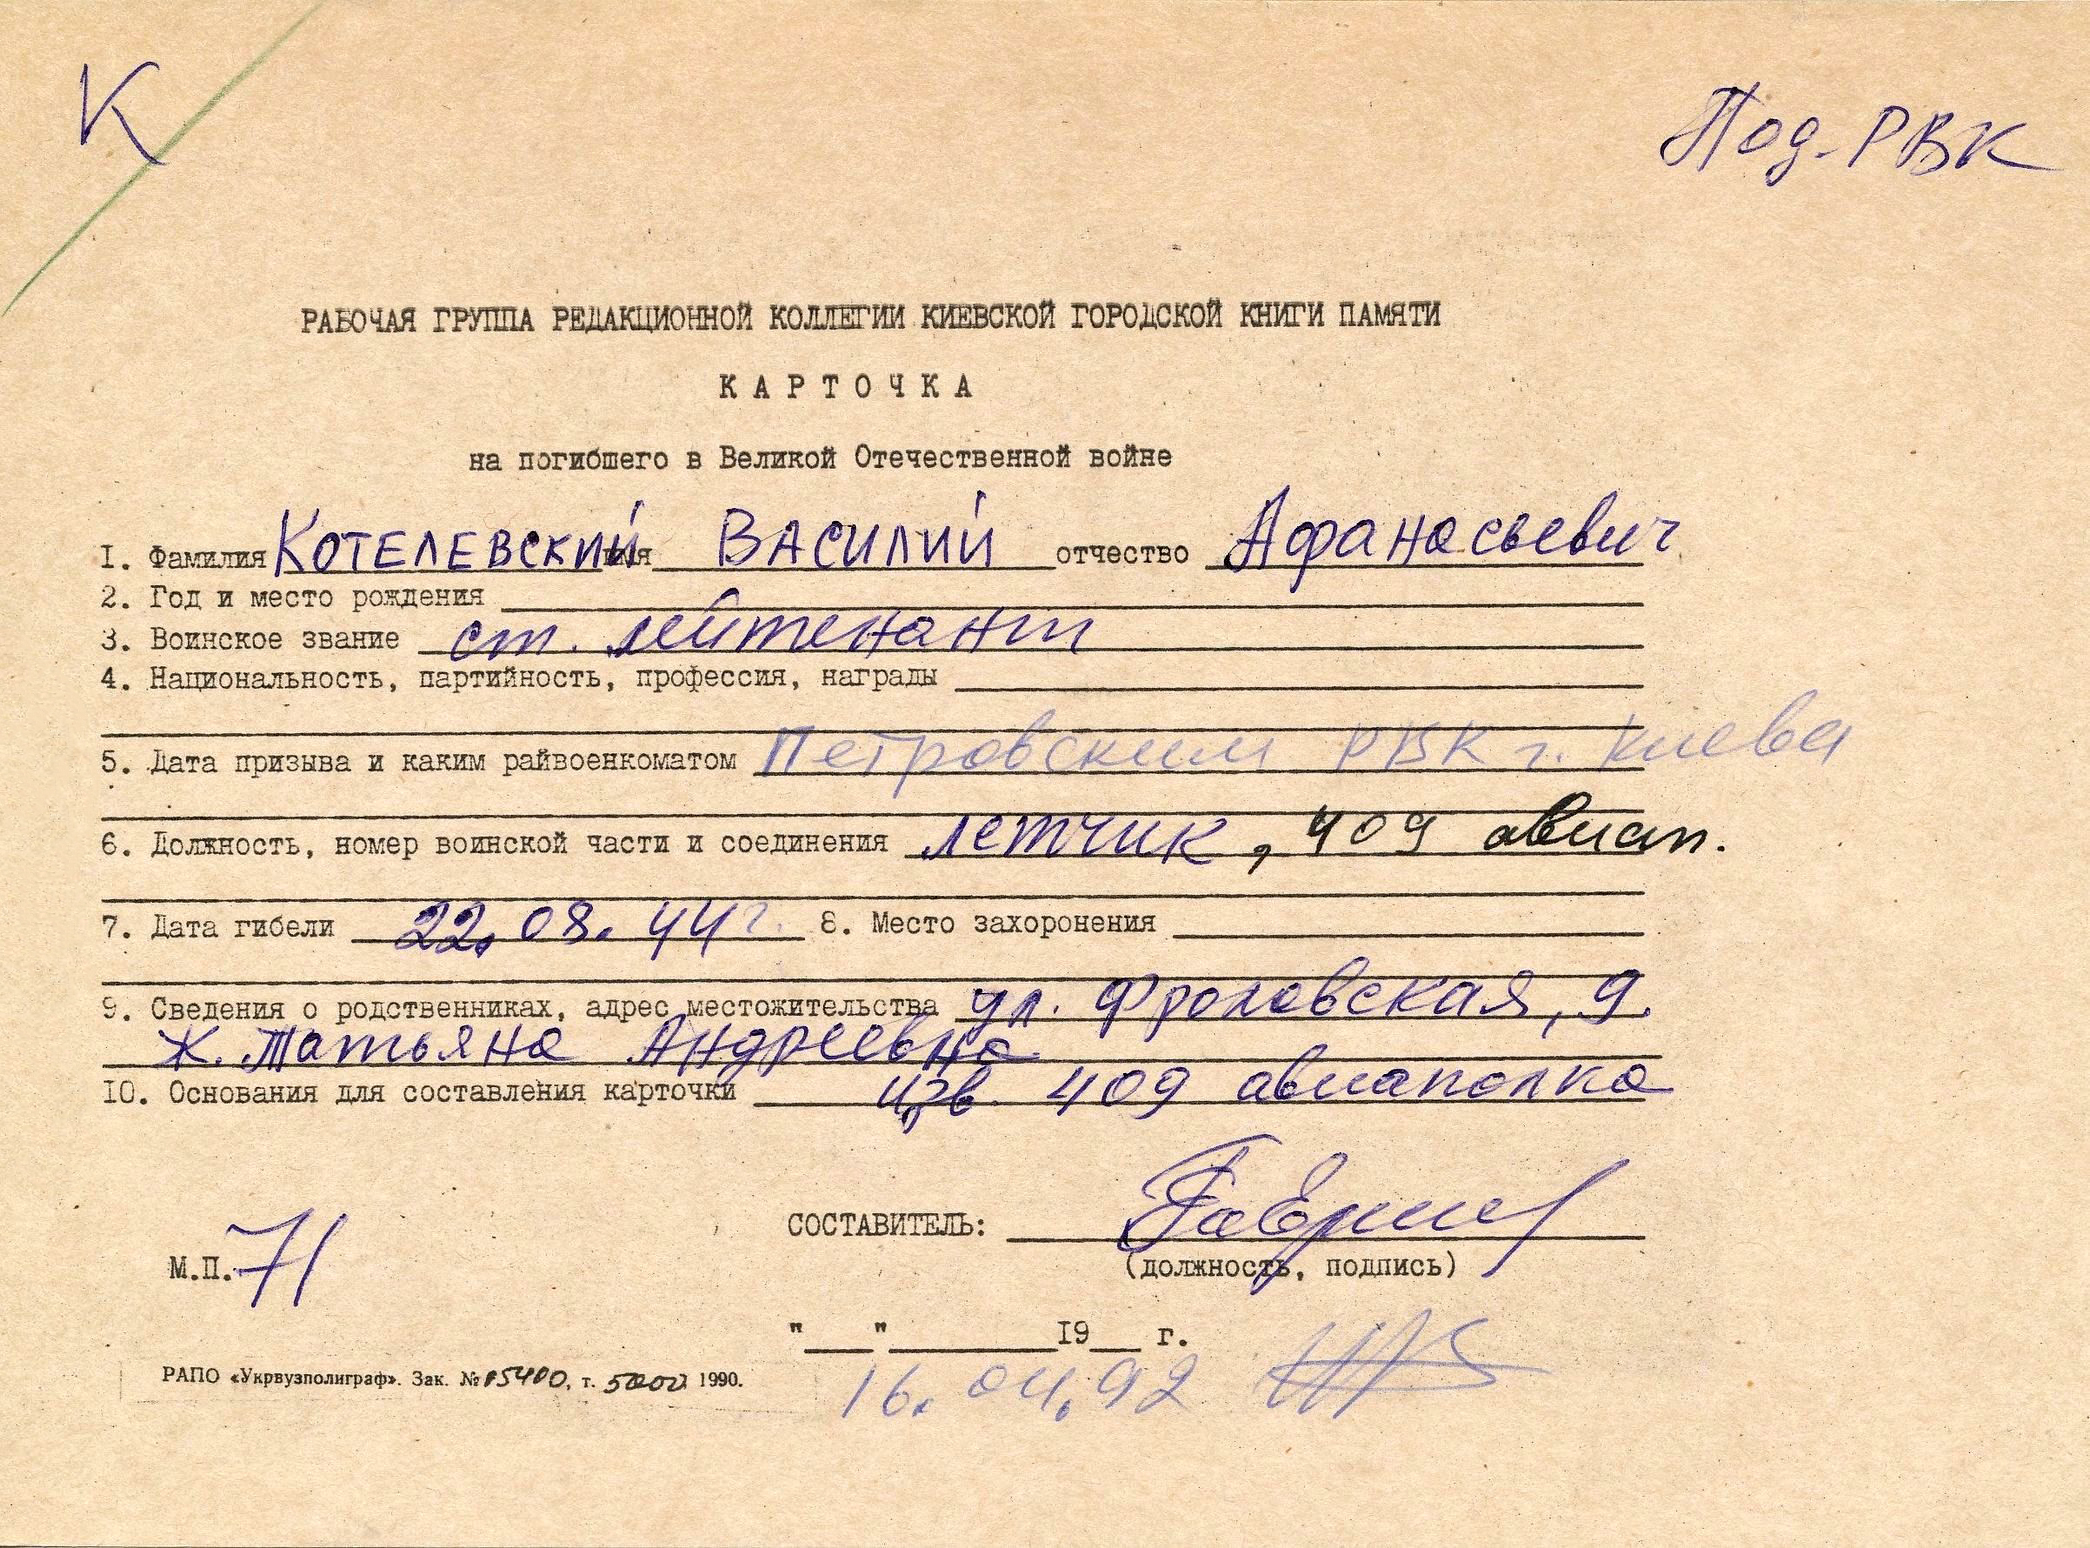 К
Под. РВК
РАБОЧАЯ ГРУППА РЕДАКЦИОННОЙ КОЛЛЕГИИ КИЕВСКОЙ ГОРОДСКОЙ КНИГИ ПАМЯТИ
КАРТОЧКА
на погибшего в Великой Отечественной войне
1. Фамилия КОТЕЛЕВСКИЙ имя ВАСИЛИЙ отчество Афанасьевич
2. Год и место рождения
3. Воинское звание ст. лейтенант
4. Национальность, партийность, профессия, награды
5. Дата призыва и каким райвоенкоматом Петровским РВК г. Киева
6. Должность, номер воинской части и соединения летчик, 409 авиап.
7. Дата гибели 22.08.44 г. 8. Место захоронения
9. Сведения о родственниках, адрес местожительства ул. Фроловская, 9.
ж. Татьяна Андреевна
10. Основания для составления карточки изв. 409 авиаполка
СОСТАВИТЕЛЬ:
М.П. 71 (должность, подпись)
"__"______19__ г.
16.04.92
РАПО «Укрвузполиграф». Зак. № 5400, т. 5000 1990.